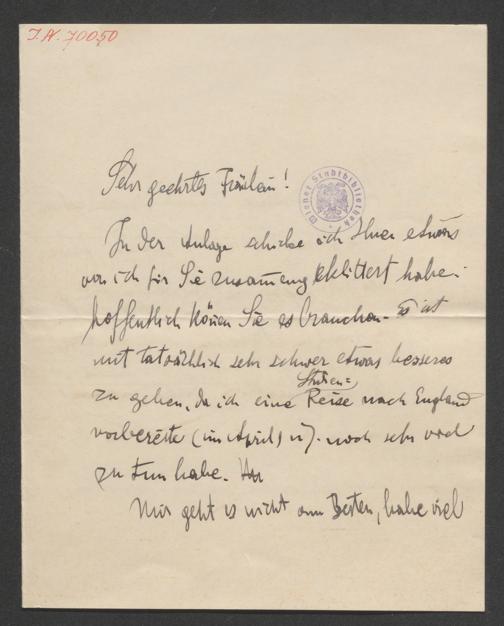 I.N. 70050
Wiener Stadtbibliothek
Sehr geehrtes Fräulein!
In der Anlage schicke ich Ihnen etwas
was ich für Sie zusammengeklittert habe.
Hoffentlich können Sie es brauchen. Es ist
mit tatsächlich sehr schwer etwas besseres
zu geben, da ich eine Studien=
Reise nach England
vorbereite (im April) u. noch sehr viel
zu tun habe.
Mir geht es nicht am Besten, habe viel